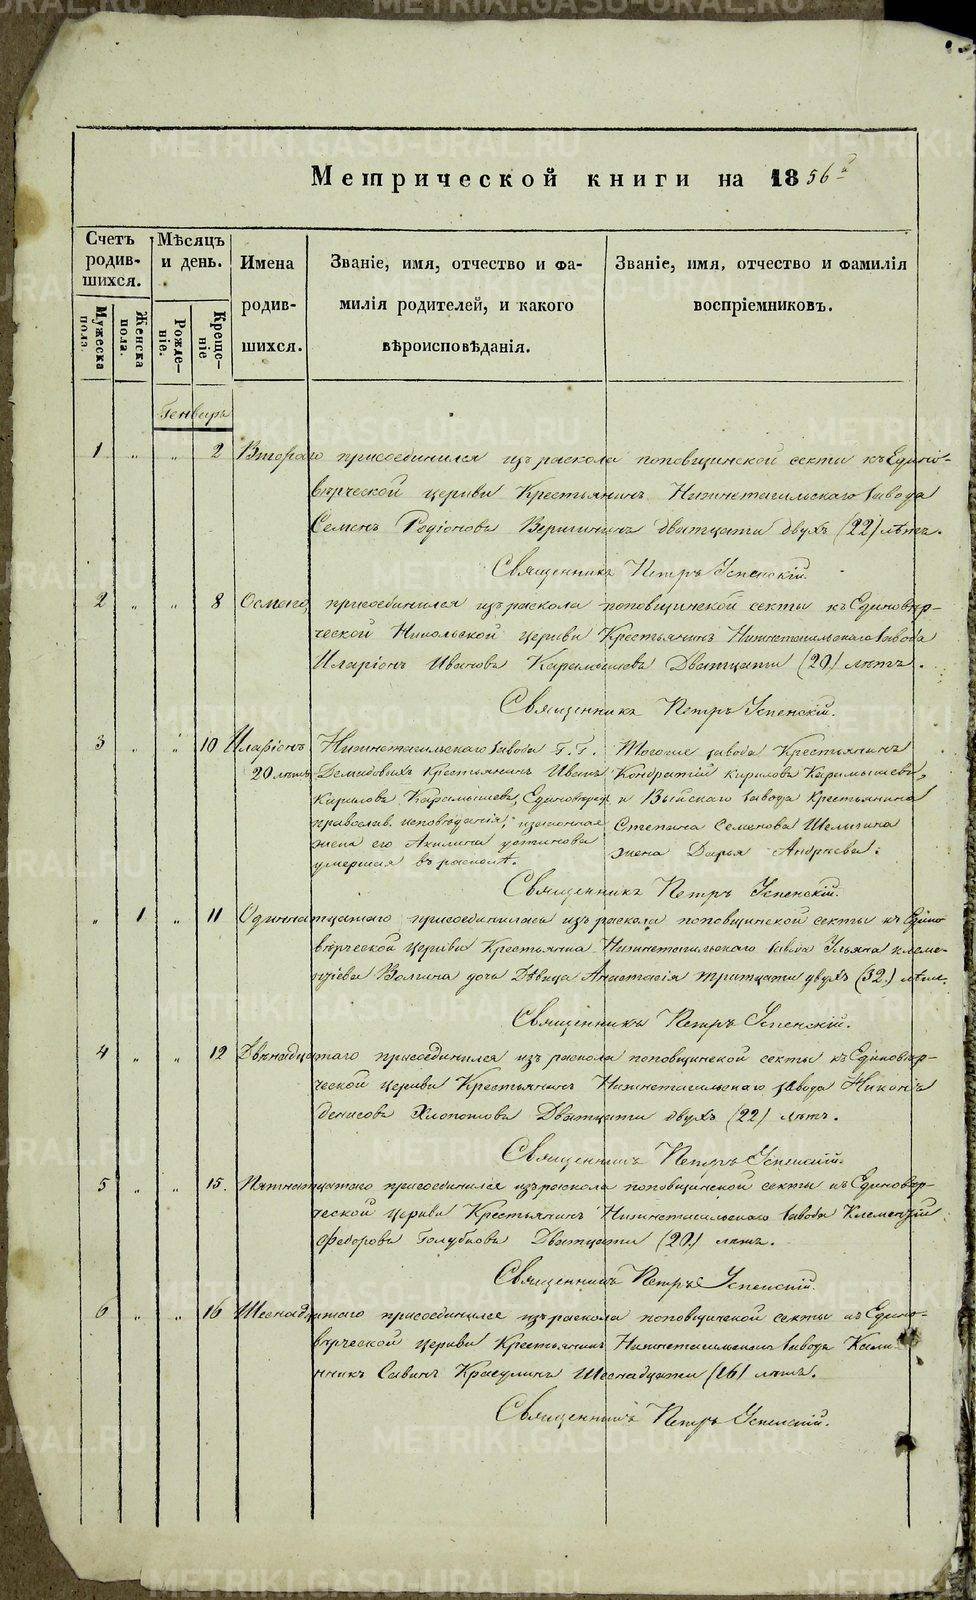 Метрической книги на 1856й
Счетъ родив-шихся.
Мѣсяцъ и день.
Имена родив-шихся.
Званіе, имя, отчество и фа-
милія родителей, и какого
вѣроисповѣданія.
Званіе, имя, отчество и фамилія
воспріемниковъ.
Мужеска пола.
Женска пола.
Рожде-ніе.
Креще-ніе
Генварь
1 " " 2 Втораго присоединился изъ раскола поповщинской секты къ Едино-
вѣрческой церкви Крестьянинъ Нижнетагильскаго завода
Семенъ Родіоновъ Веригинъ Дватцати двухъ (22) лѣтъ.
Священникъ Петръ Успенскій.
2 " " 8 Осмаго, присоединился изъ раскола поповщинской секты къ Единовѣр-
ческой Никольской церкви Крестьянинъ Нижнетагильскаго завода
Иларіонъ Ивановъ Карамышевъ Дватцати (20) лѣтъ.
Священникъ Петръ Успенскій.
3 " " 10 Иларіонъ Нижнетагильскаго завода Г.Г. Тогоже завода Крестьянинъ
20 лѣтъ Демидовыхъ крестьянинъ Иванъ Кондратій Кириловъ Карамышевъ,
Кириловъ Карамышевъ, и Выйскаго завода крестьянина
православ. исповѣданія, Степана Семенова Шелыгина
жена его Акилина Устинова жена Дарья Андреева.
умершая въ расколѣ.
Священникъ Петръ Успенскій.
" 1 " 11 Одиннатцатаго присоединилась изъ раскола поповщинской секты къ Едино-
вѣрческой церкви Крестьянина Нижнетагильскаго завода Ульяна Клеме-
нтіева Волгина дочь Дѣвица Анастасія тритцати двухъ (32.) лѣтъ.
Священникъ Петръ Успенскій.
4 " " 12 Двѣнадцатаго присоединился изъ раскола поповщинской секты къ Единовѣр-
ческой церкви Крестьянинъ Нижнетагильскаго завода Никонъ
Денисовъ Хлопотовъ Дватцати двухъ (22) лѣтъ.
Священникъ Петръ Успенскій.
5 " " 15. Пятнатцатаго присоединился изъ раскола поповщинской секты къ Единовѣр-
ческой церкви Крестьянинъ Нижнетагильскаго завода Клементій
Федоровъ Голубковъ Дватцати (20.) лѣтъ.
Священникъ Петръ Успенскій.
6 " " 16 Шеснадцатаго присоединился изъ раскола поповщинской секты къ Едино-
вѣрческой церкви Крестьянинъ Нижнетагильскаго завода Кали-
нникъ Савинъ Красулинъ Шеснадцати (16) лѣтъ.
Священникъ Петръ Успенскій.
METRIKI.GASO-URAL.RU